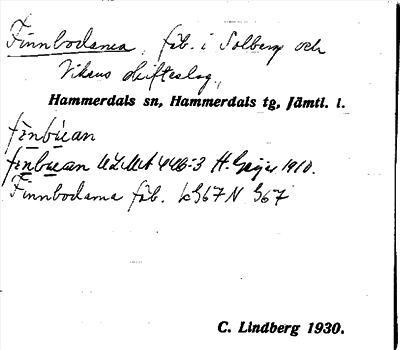 Finnbodarna, fäb. i Solberg och
Vikens skifteslag,
Hammerdals sn, Hammerdals tg, Jämtl. l.
fɪnbùan
fɪnbùan ULMA 446:3 H. Geijer 1910.
Finnbodarna fäb. LG67 N G67
C. Lindberg 1930.